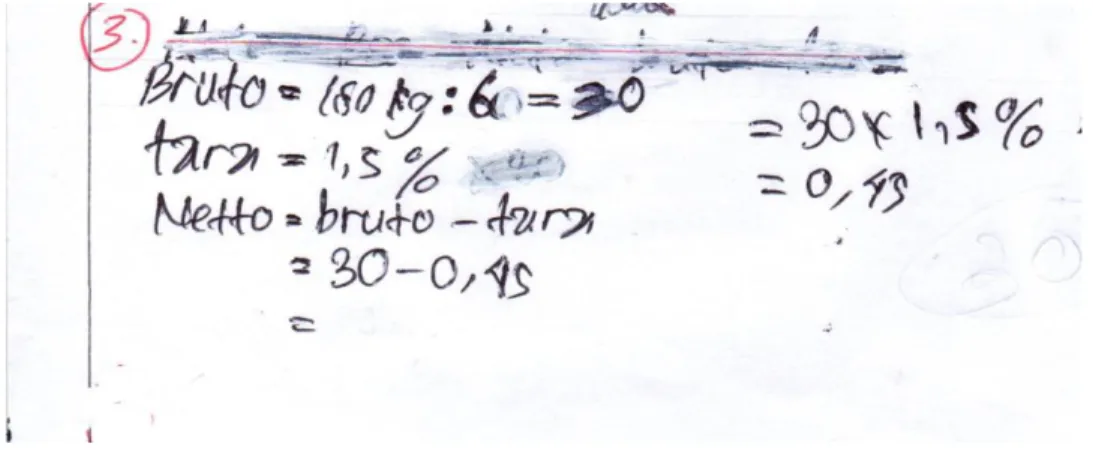 3.
Bruto = 180 kg : 6 = 30
tara = 1,5 %
Netto = bruto - tara
= 30 - 0,45
=
= 30 x 1,5 %
= 0,45